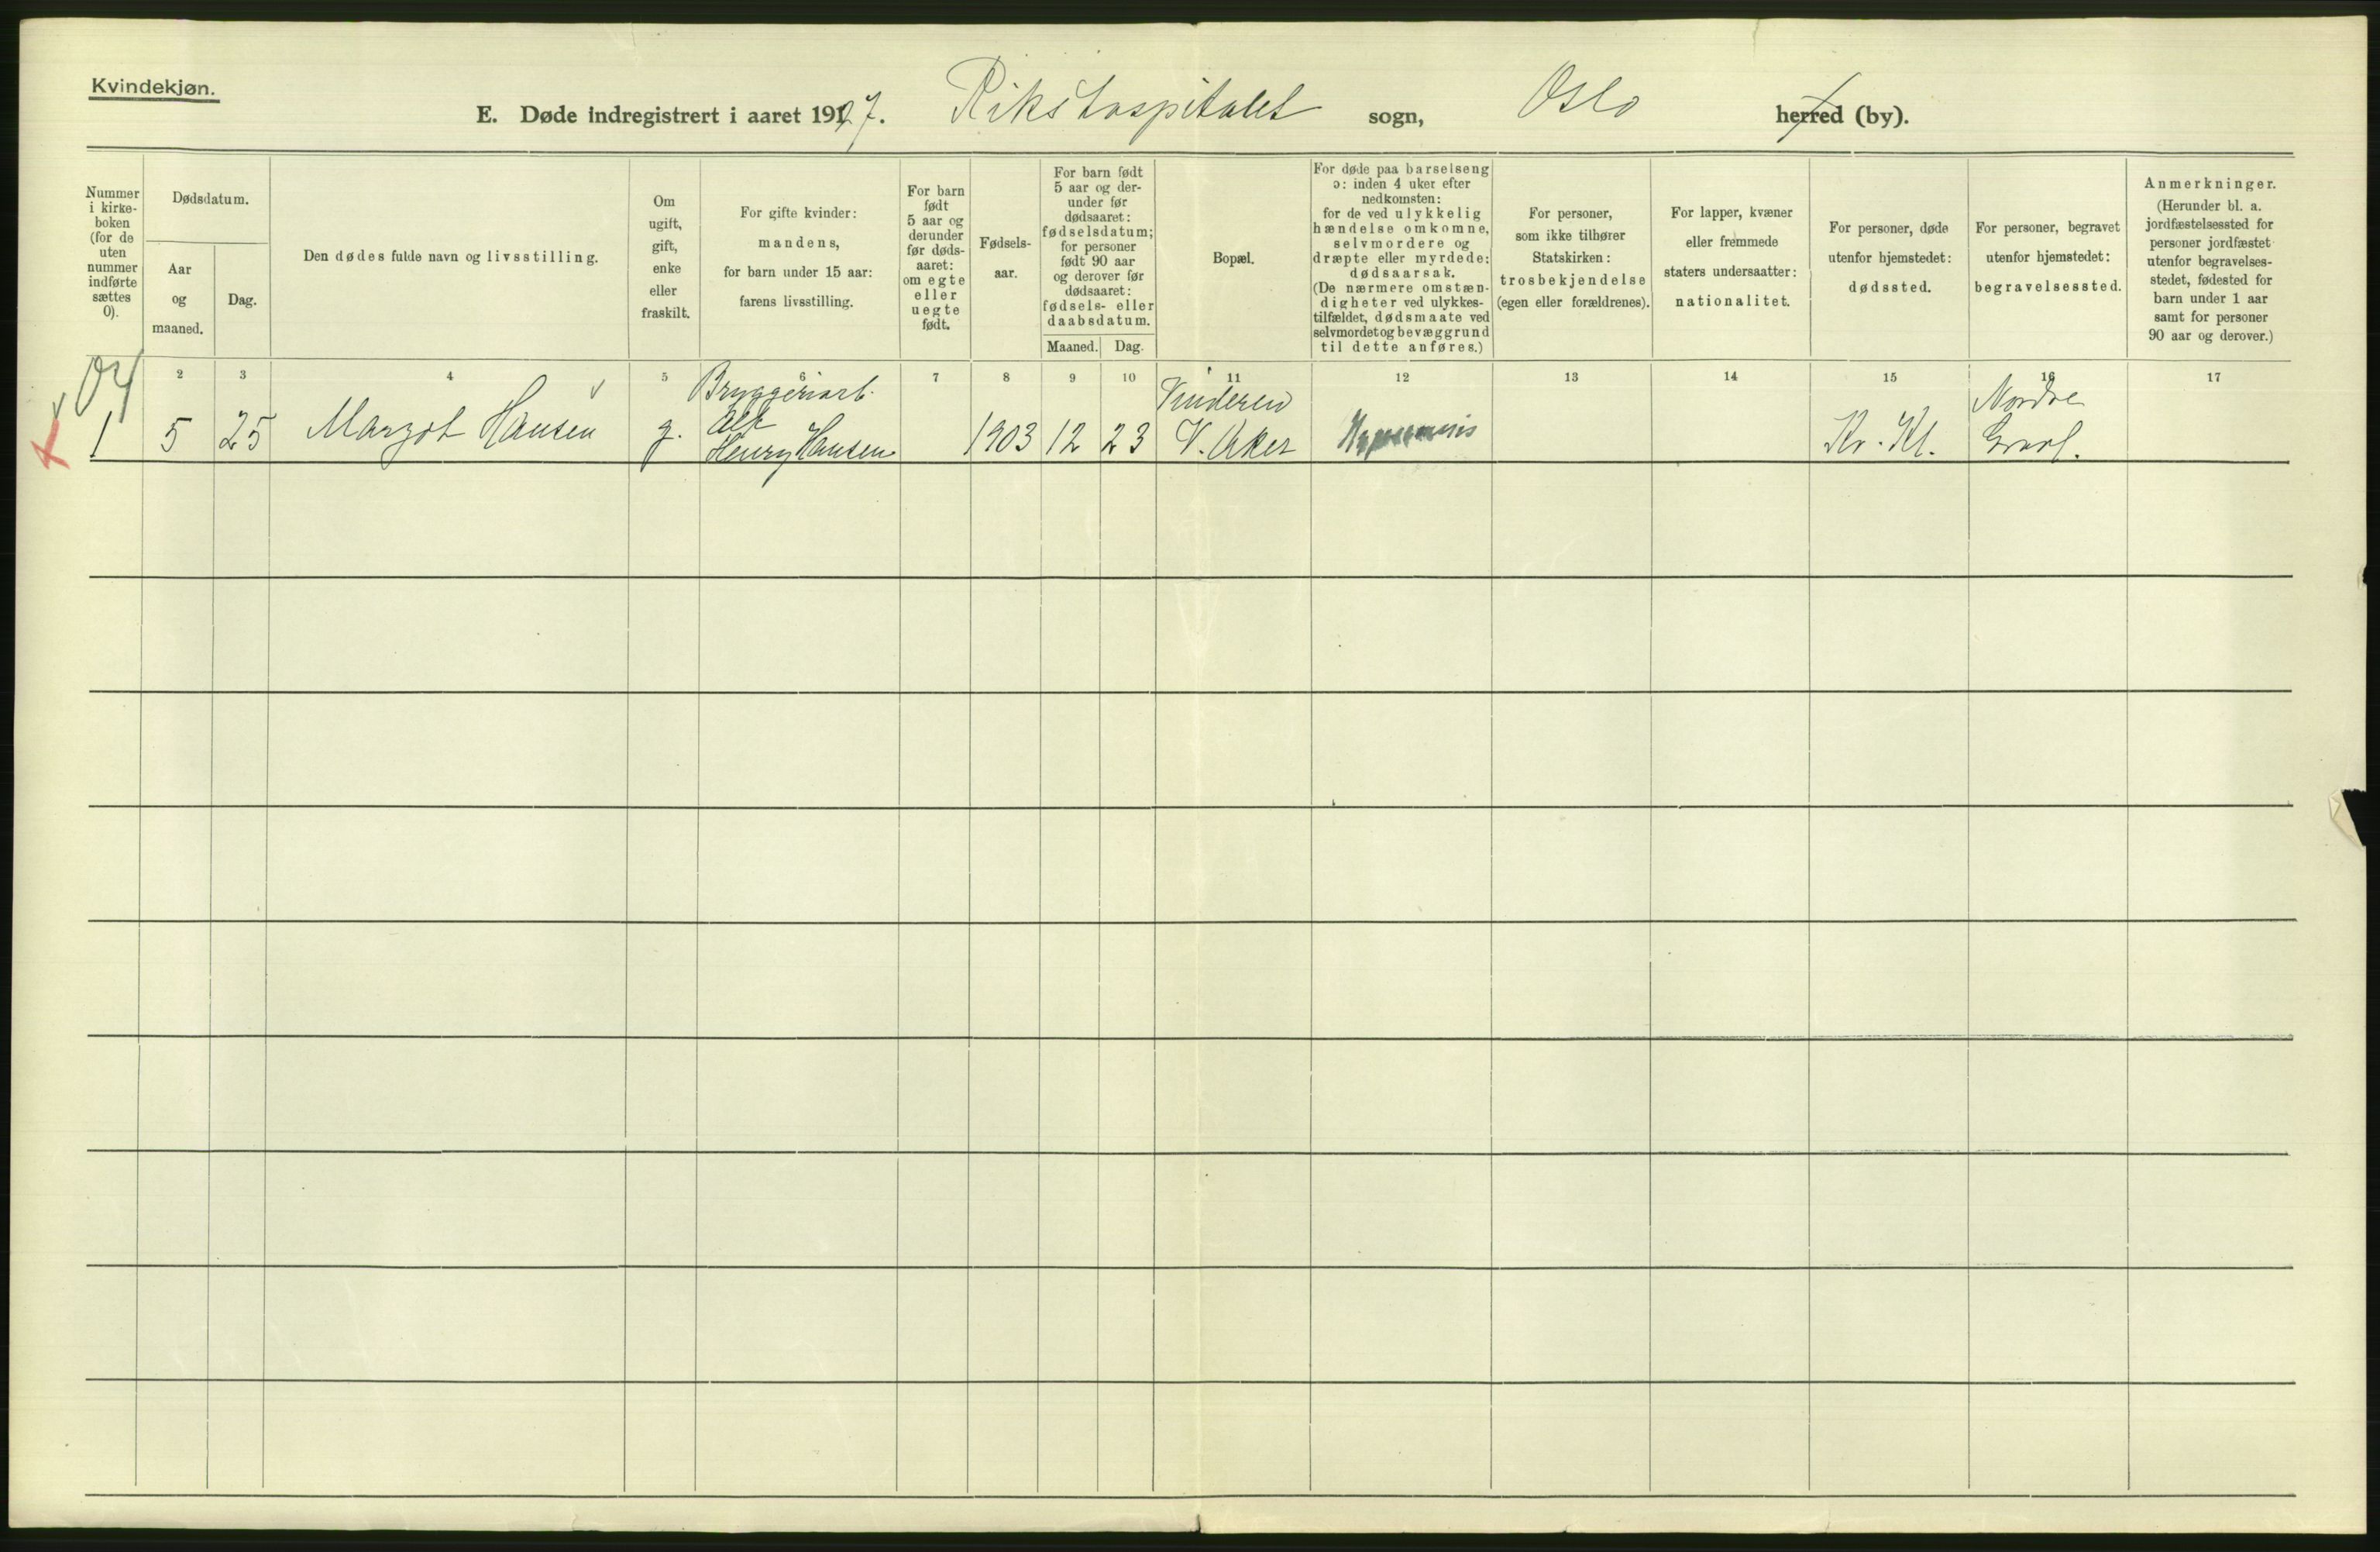 Kvindekjøn.
E. Døde indregistrert i aaret 1927. Rikshospitalet sogn, Oslo herred (by).
Nummer
i kirke-
boken
(for de
uten
nummer
indførte
sættes
0).
Dødsdatum.
Aar
og
maaned.
Dag.
Den dødes fulde navn og livsstilling.
Om
ugift,
gift,
enke
eller
fraskilt.
For gifte kvinder:
mandens,
for barn under 15 aar:
farens livsstilling.
For barn
født
5 aar og
derunder
før døds-
aaret:
om egte
eller
uegte
født.
Fødsels-
aar.
For barn født
5 aar og der-
under før
dødsaaret:
fødselsdatum;
for personer
født 90 aar
og derover før
dødsaaret:
fødsels- eller
daabsdatum.
Maaned. Dag.
Bopæl.
For døde paa barselseng
ɔ: inden 4 uker efter
nedkomsten:
for de ved ulykkelig
hændelse omkomne,
selvmordere og
dræpte eller myrdede:
dødsaarsak.
(De nærmere omstæn-
digheter ved ulykkes-
tilfældet, dødsmaate ved
selvmordet og bevæggrund
til dette anføres.)
For personer,
som ikke tilhører
Statskirken:
trosbekjendelse
(egen eller forældrenes).
For lapper, kvæner
eller fremmede
staters undersaatter:
nationalitet.
For personer, døde
utenfor hjemstedet:
dødssted.
For personer, begravet
utenfor hjemstedet:
begravelsessted.
Anmerkninger.
(Herunder bl. a.
jordfæstelsessted for
personer jordfæstet
utenfor begravelses-
stedet, fødested for
barn under 1 aar
samt for personer
90 aar og derover.)
2 3 4 5 6 7 8 9 10 11 12 13 14 15 16 17
04
1 5 25 Margot Hansen g.
Bryggeriarb.
Alf
Henry Hansen
1903 12 23
Vinderen
V. Aker
Kr. Kl.
Nordre
Gravl.